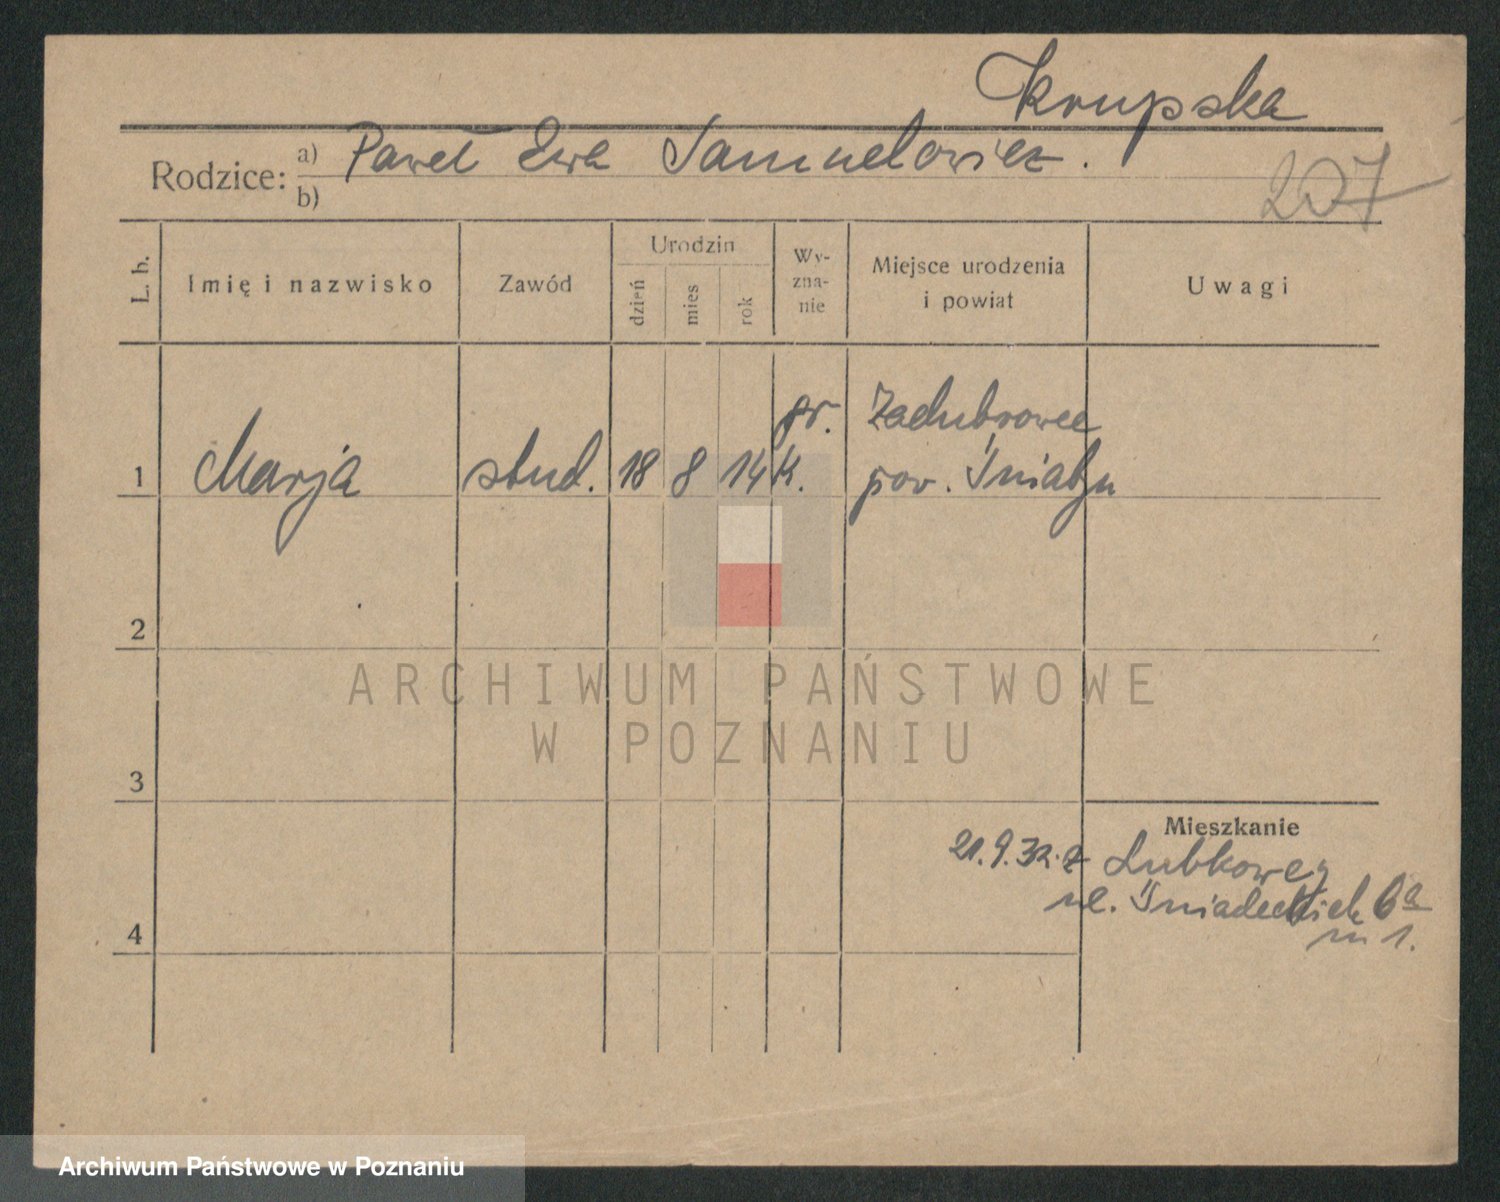 Krupska
Rodzice: a) Paweł Ewa Samuelowicz.
b)
207
L. b.
Imię i nazwisko
Zawód
Urodzin
dzień
mies
rok
Wy-
zna-
nie
Miejsce urodzenia
i powiat
Uwagi
1 Marja stud. 18 8 14 gr. K.
Zadubrowce
pow. Śniatyn
2
3
4
Mieszkanie
21.9.32. z Lubkowej
ul. Śniadeckich 6a
m 1.
ARCHIWUM PAŃSTWOWE
W POZNANIU
Archiwum Państwowe w Poznaniu